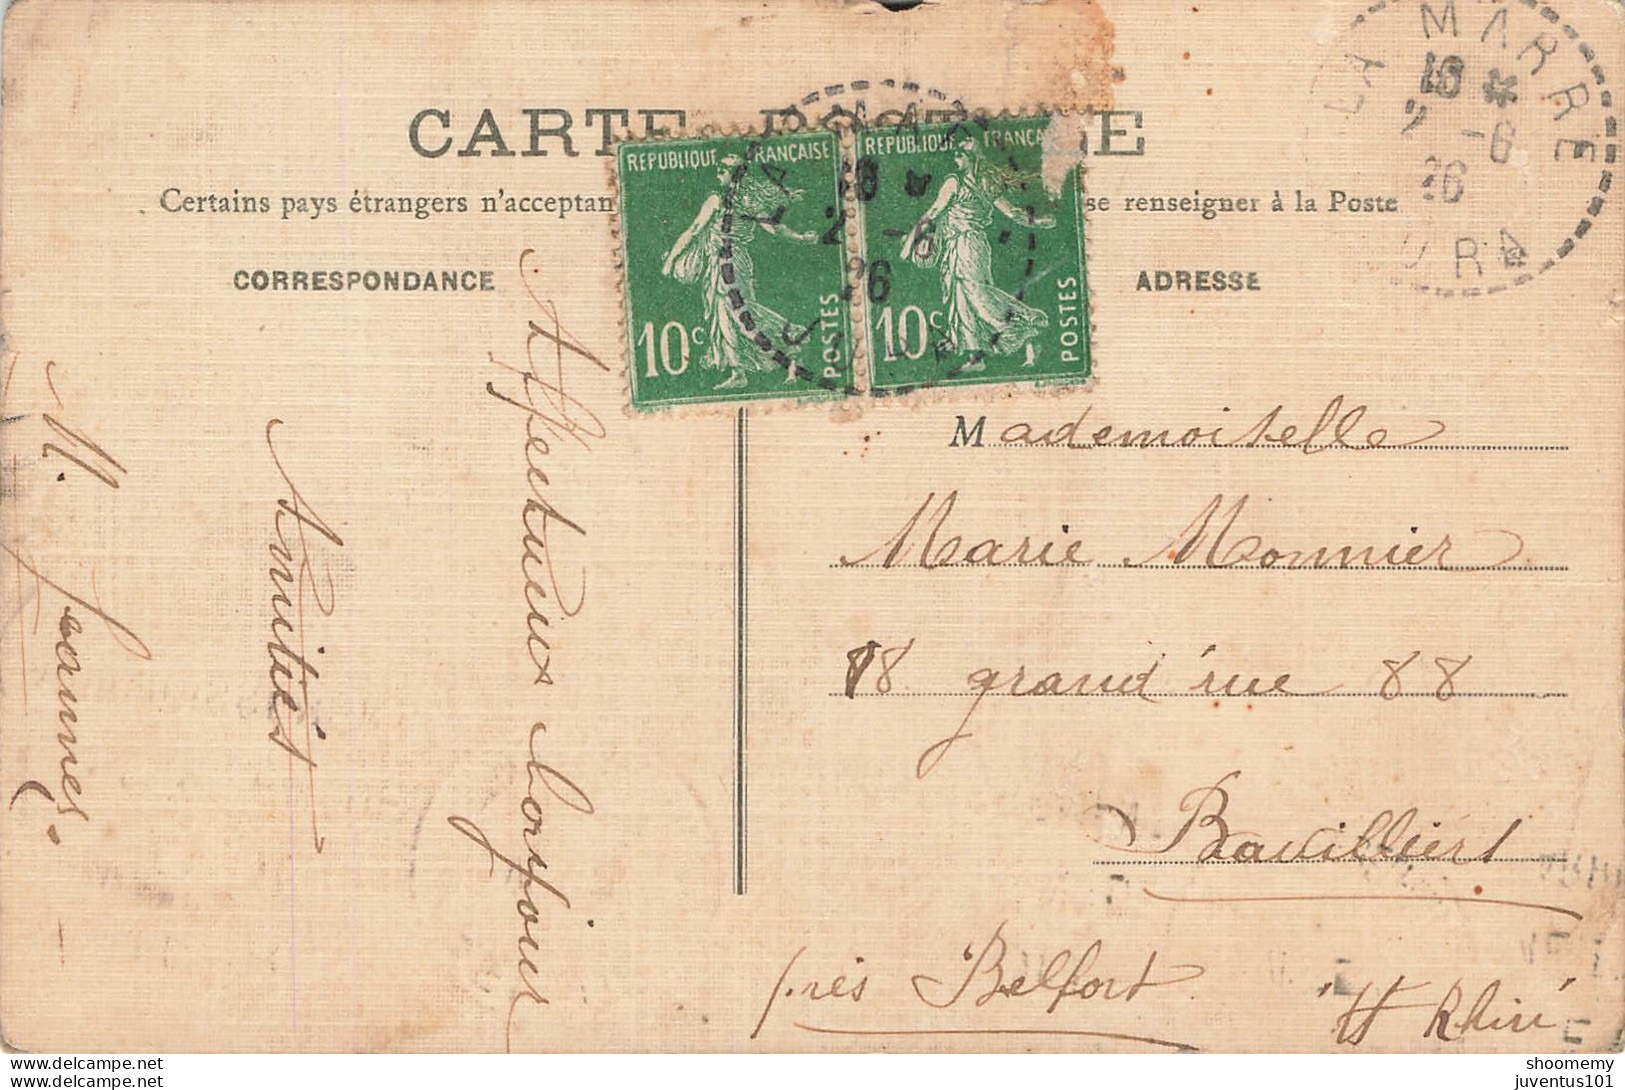 CARTE POSTALE
Certains pays étrangers n'acceptan
se renseigner à la Poste
CORRESPONDANCE
ADRESSE
REPUBLIQUE FRANÇAISE
10c
POSTES
REPUBLIQUE FRANÇAISE
10c
POSTES
LA MARRE
18 *
2 -6
26
JURA
LA MARRE
18 *
2 -6
26
JURA
Affectueux bonjour
Amitiés
M. Jeannes.
Mademoiselle
Marie Monnier
88 grand rue 88
Bavilliers
près Belfort Ht Rhin
shoomemy
juventus101